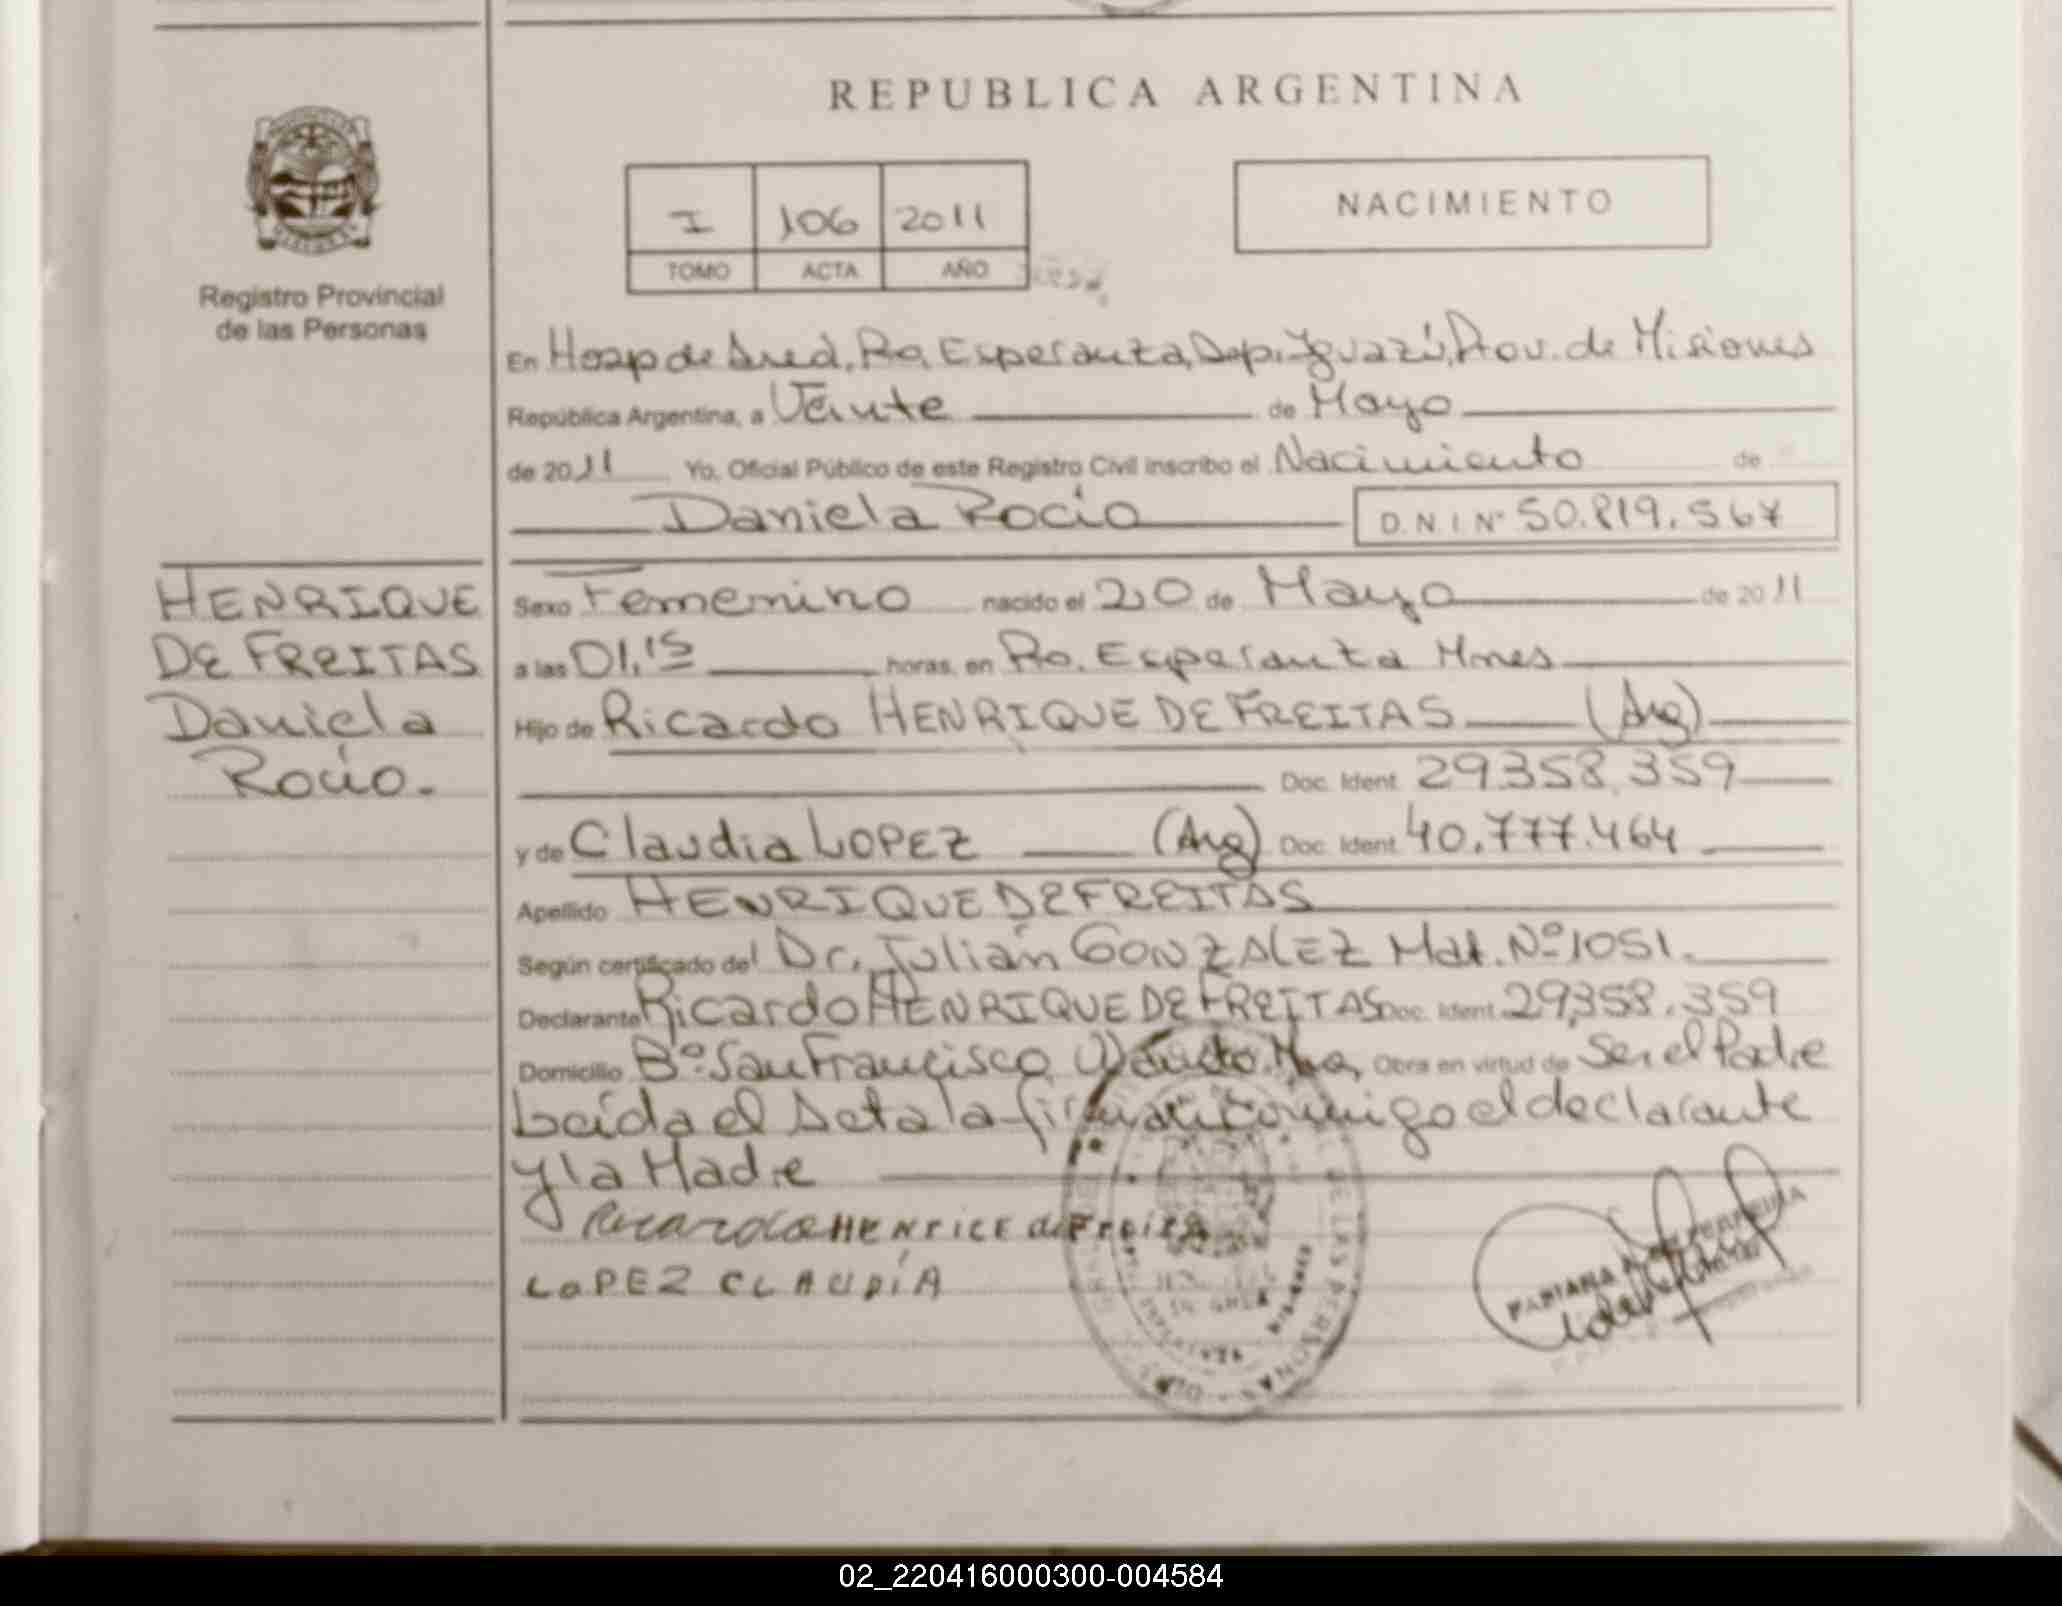 REPUBLICA ARGENTINA
I 106 2011
TOMO ACTA AÑO
NACIMIENTO
Registro Provincial
de las Personas
En Hosp de Area, Pto. Esperanza, Dep. Iguazú, Prov. de Misiones
República Argentina, a Veinte de Mayo
de 2011 Yo, Oficial Público de este Registro Civil inscribo el Nacimiento de
Daniela Rocío D.N.I Nº 50.819.567
HENRIQUE
DE FREITAS
Daniela
Rocío.
Sexo Femenino nacido el 20 de Mayo de 2011
a las 01,15 horas, en Pto. Esperanza Mnes
Hijo de Ricardo HENRIQUE DE FREITAS (Arg)
Doc. Ident. 29.358.359
y de Claudia LOPEZ (Arg) Doc. Ident. 40.777.464
Apellido HENRIQUE DE FREITAS
Según certificado del Dr. Julián GONZALEZ Mat. Nº 1051.
Declarante Ricardo HENRIQUE DE FREITAS Doc. Ident. 29.358.359
Domicilio Bº San Francisco, Wanda. Obra en virtud de Ser el Padre
Leída el Acta la firman conmigo el declarante
y la Madre
Ricardo HENRICE de Freita
LOPEZ CLAUDÍA
DE LAS PERSONAS
FABIANA
02_220416000300-004584